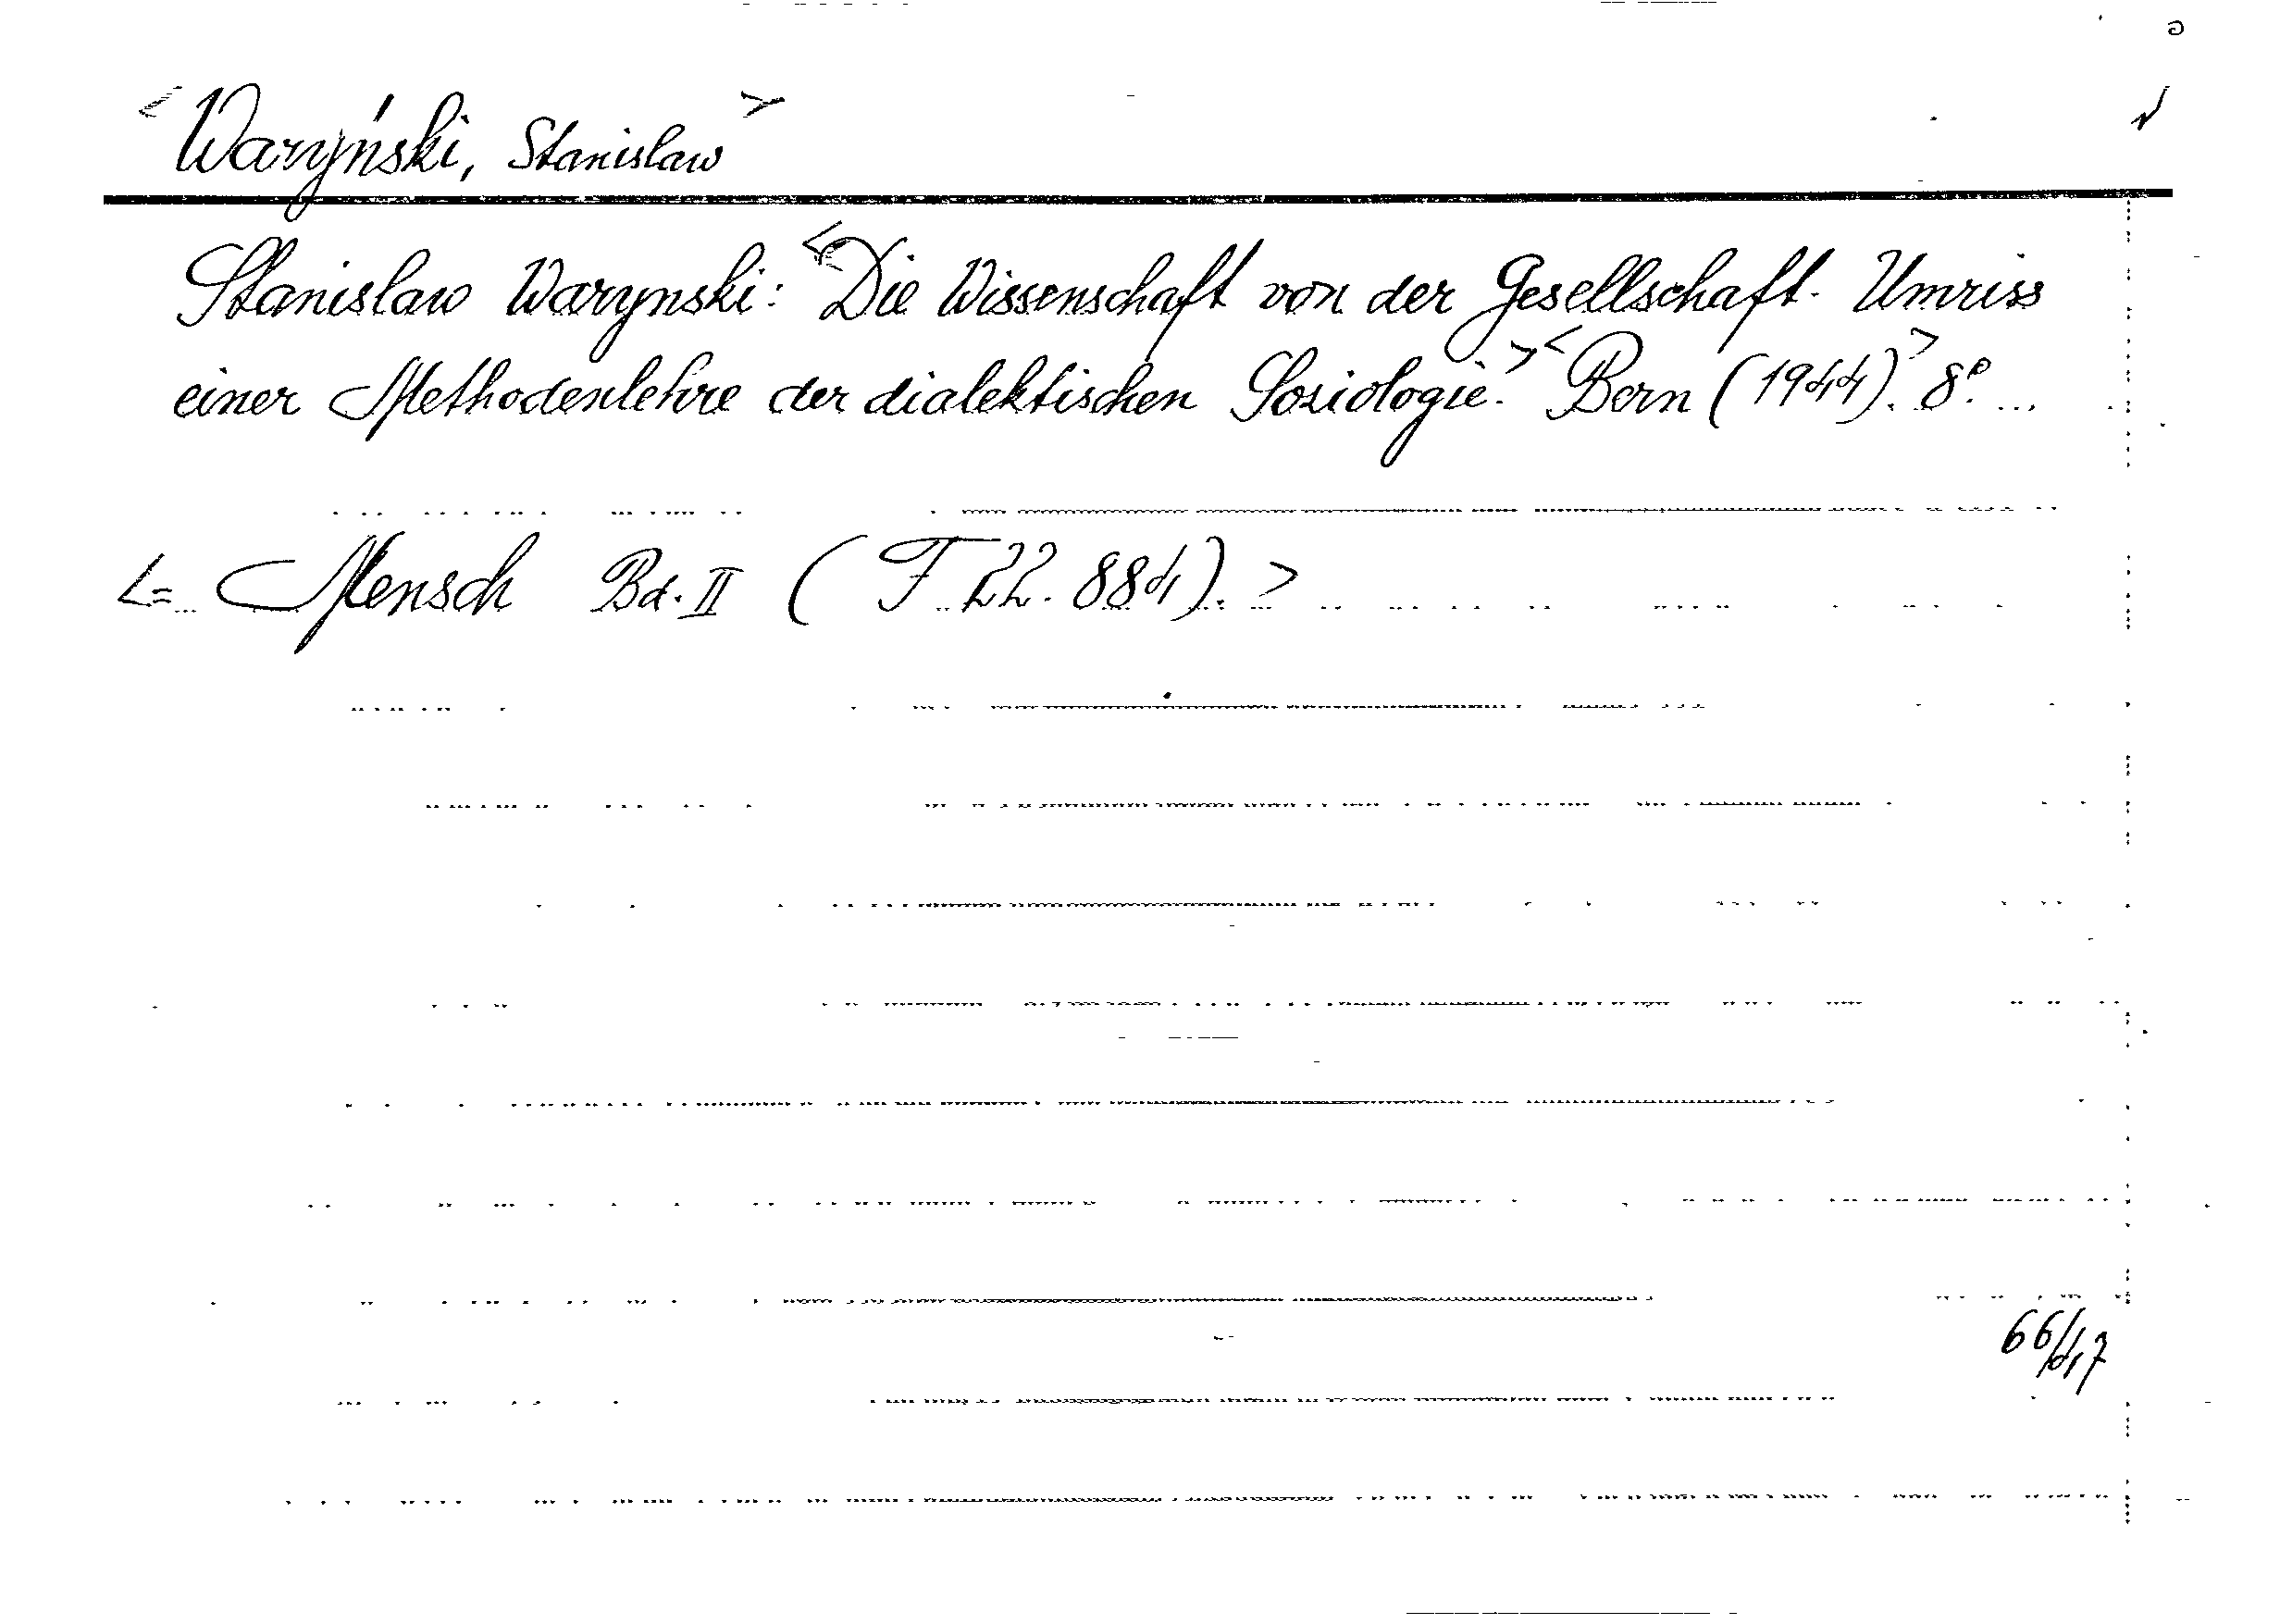 <Waryński, Stanislaw>
Stanislaw Warynski: <Die Wissenschaft von der Gesellschaft. Umriss
einer Methodenlehre der dialektischen Soziologie.> <Bern (1944).> 8º.
<= Mensch Bd. II (F 22.884).>
66/417